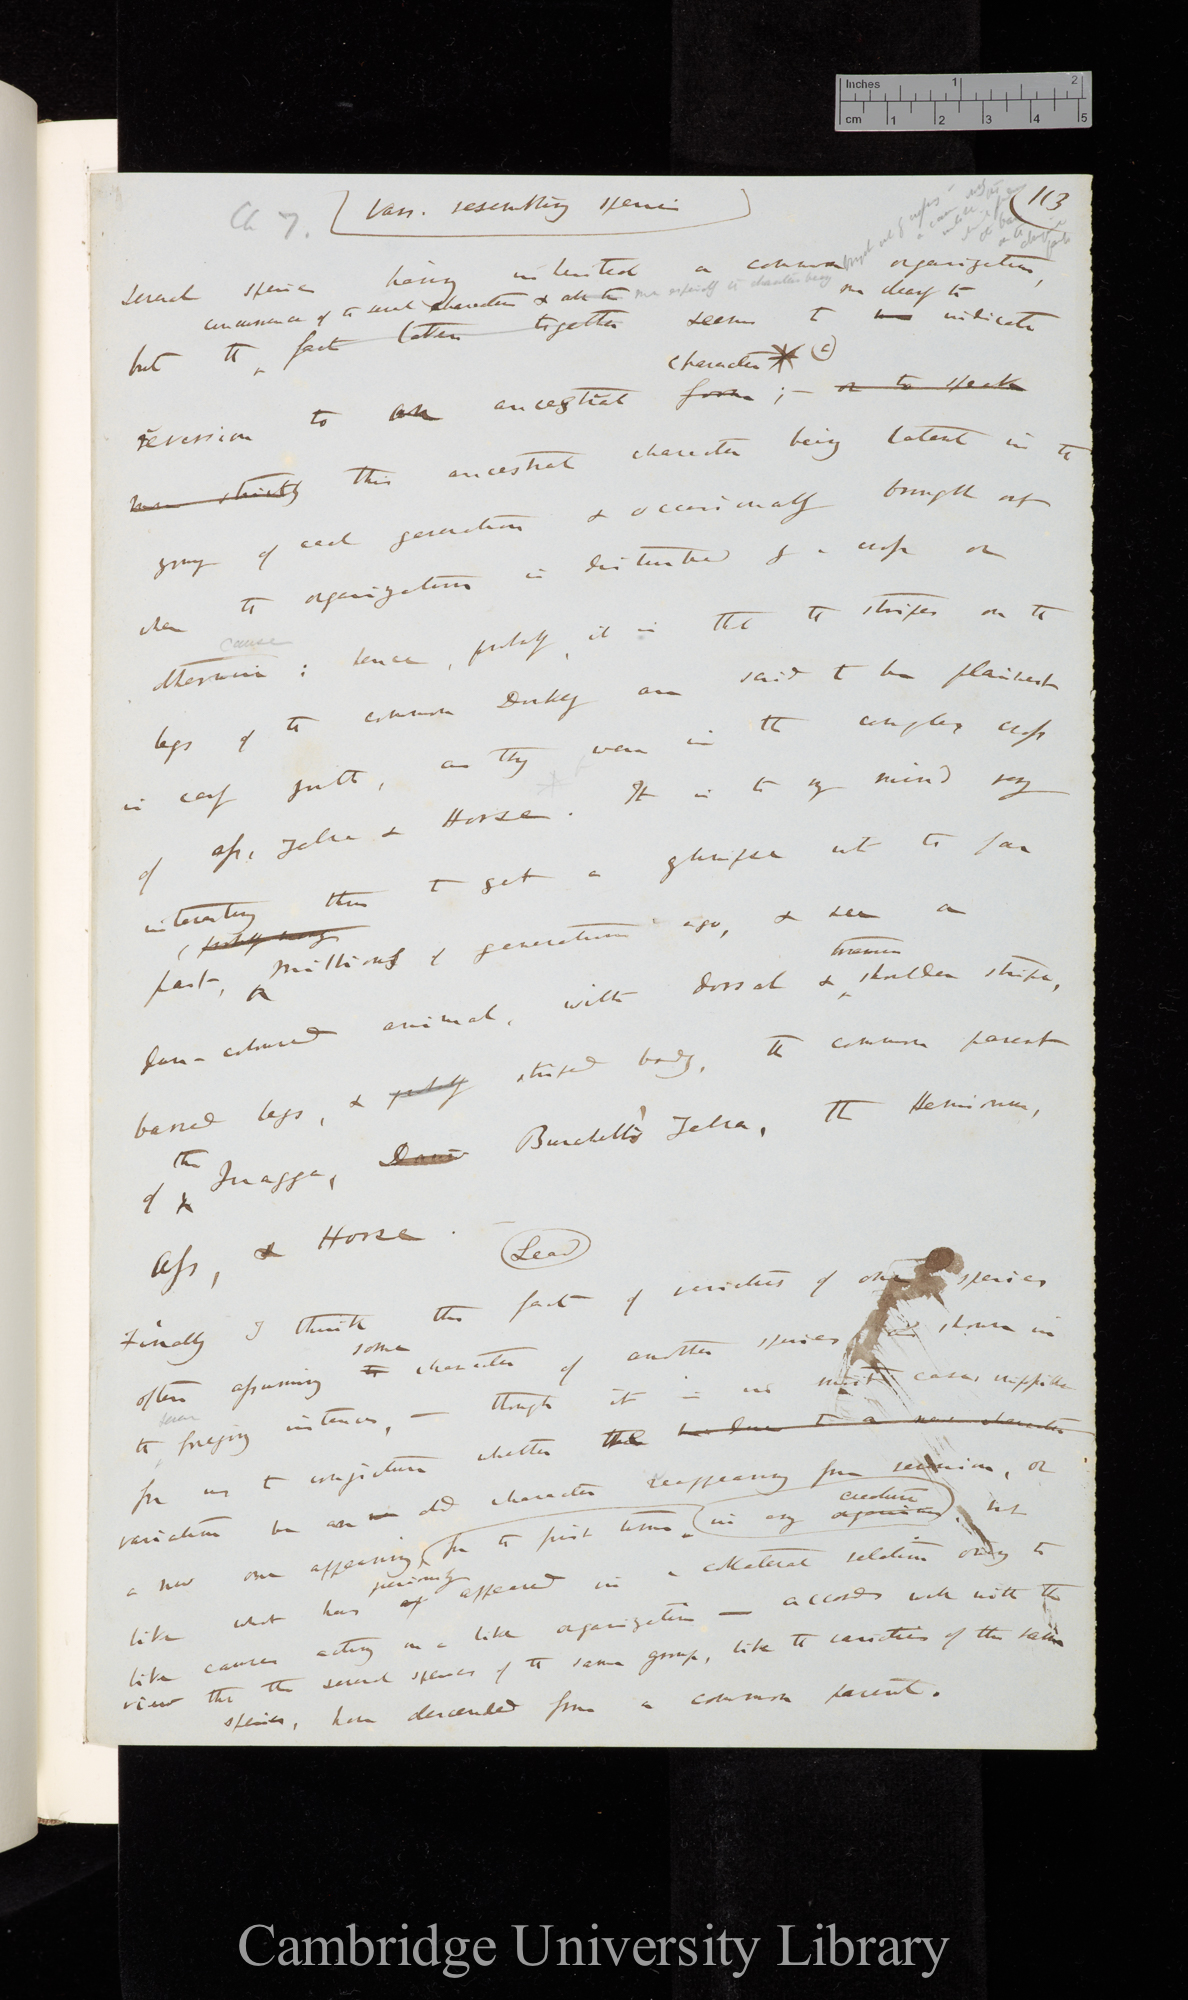 Inches 1 2
cm 1 2 3 4 5
Ch 7.
Vars. resembling species
113
several species having inherited a common organization,
concurrence of the several characters & all the
more clearly to
but the fact taken together seems to indicate
character * (a)
reversion to an ancestral form ; — or to speak
more strictly this ancestral character being latent in the
germ of each generation & occasionally brought out
when the organization is disturbed by a cross or
cause
otherwise ; hence, probably, it is that the stripes on the
legs of the common Donkey are said to be plainest
in early youth, as they were in the complex cross
of ass, Zebra & Horse. It is to my mind very
interesting thus to get a glimpse into the far
(probably many
past, millions of generations ago, & see a
transverse
dun-coloured animal, with dorsal & shoulder stripe,
barred legs, & probably striped body, the common parent
the
of Quagga, Burchell's Zebra, the Hemionus,
Ass, & Horse.
Lead
Finally I think the fact of varieties of one species
some
often assuming the character of another species as shown in
the foregoing instances, — though it is in most cases impossible
for us to conjecture whether the be due to a new character
variation be an old character reappearing from reversion, or
creature
a new one appearing for the first time in any organism, but
previously
like what has appeared in a collateral relation owing to
like causes acting on a like organization — accords well with the
view that the several species of the same group, like the varieties of the same
species, have descended from a common parent.
Cambridge University Library